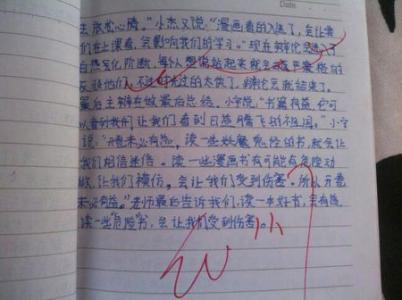 去放松心情。”小杰又说:“漫画看的入迷了,会让我
们在上课看,会影响我们的学习。”现在辩论进入了
白热化阶段,每个人想站起来就
反驳他们,不过时光过的太快了,辩论会就结束了。
最后主辩在做最后总结。小学说:“书籍有益,它可
以看到我们,让我们看到日益腾飞的祖国。”小宇
说:“开卷未必有益。读一些妖魔鬼怪的书,就会让
我们相信迷信。读一些漫画书有可能有危险动
做,让我们模仿。会让我们受到伤害。所以开卷
未必有益。”老师最后告诉我们,读一本好书,会有益
读一些“危险”书,会让我们受到伤害。